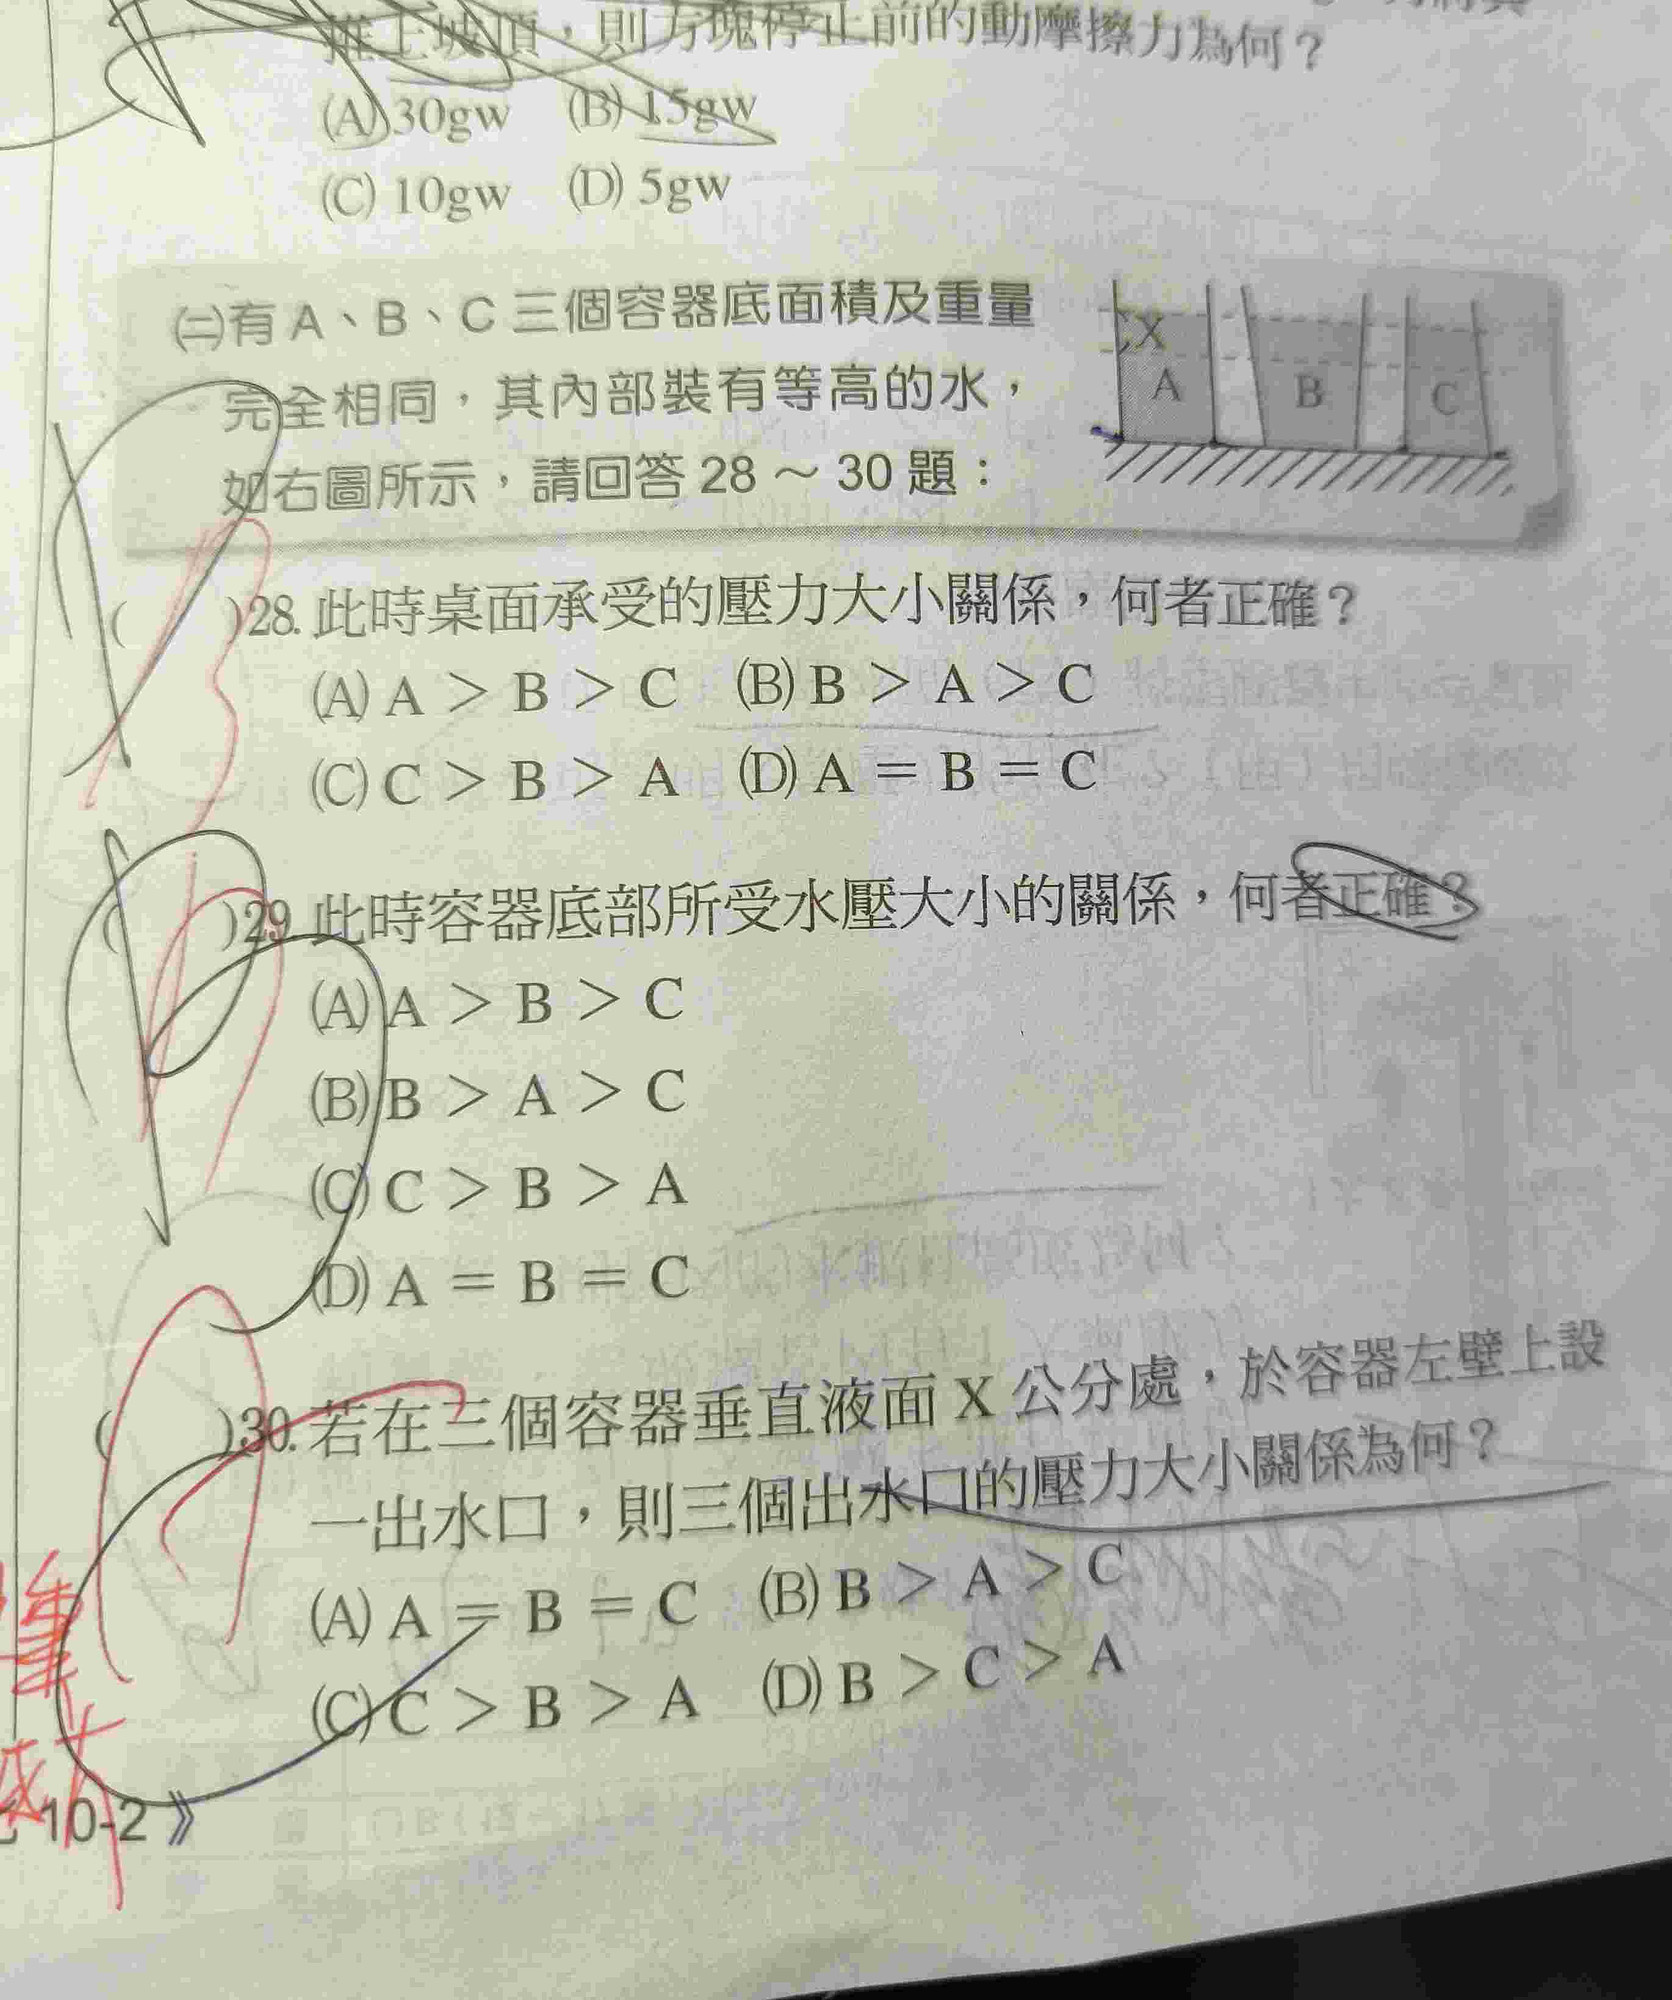 推上坡頂,則方塊停止前的動摩擦力為何?
(A) 30gw (B) 15gw
(C) 10gw (D) 5gw
㈡有 A、B、C 三個容器底面積及重量
完全相同,其內部裝有等高的水,
如右圖所示,請回答 28 ~ 30 題:
X
A B C
( )28. 此時桌面承受的壓力大小關係,何者正確?
(A) A > B > C (B) B > A > C
(C) C > B > A (D) A = B = C
( )29. 此時容器底部所受水壓大小的關係,何者正確?
(A) A > B > C
(B) B > A > C
(C) C > B > A
(D) A = B = C
( )30. 若在三個容器垂直液面 X 公分處,於容器左壁上設
一出水口,則三個出水口的壓力大小關係為何?
(A) A = B = C (B) B > A > C
(C) C > B > A (D) B > C > A
10-2 》